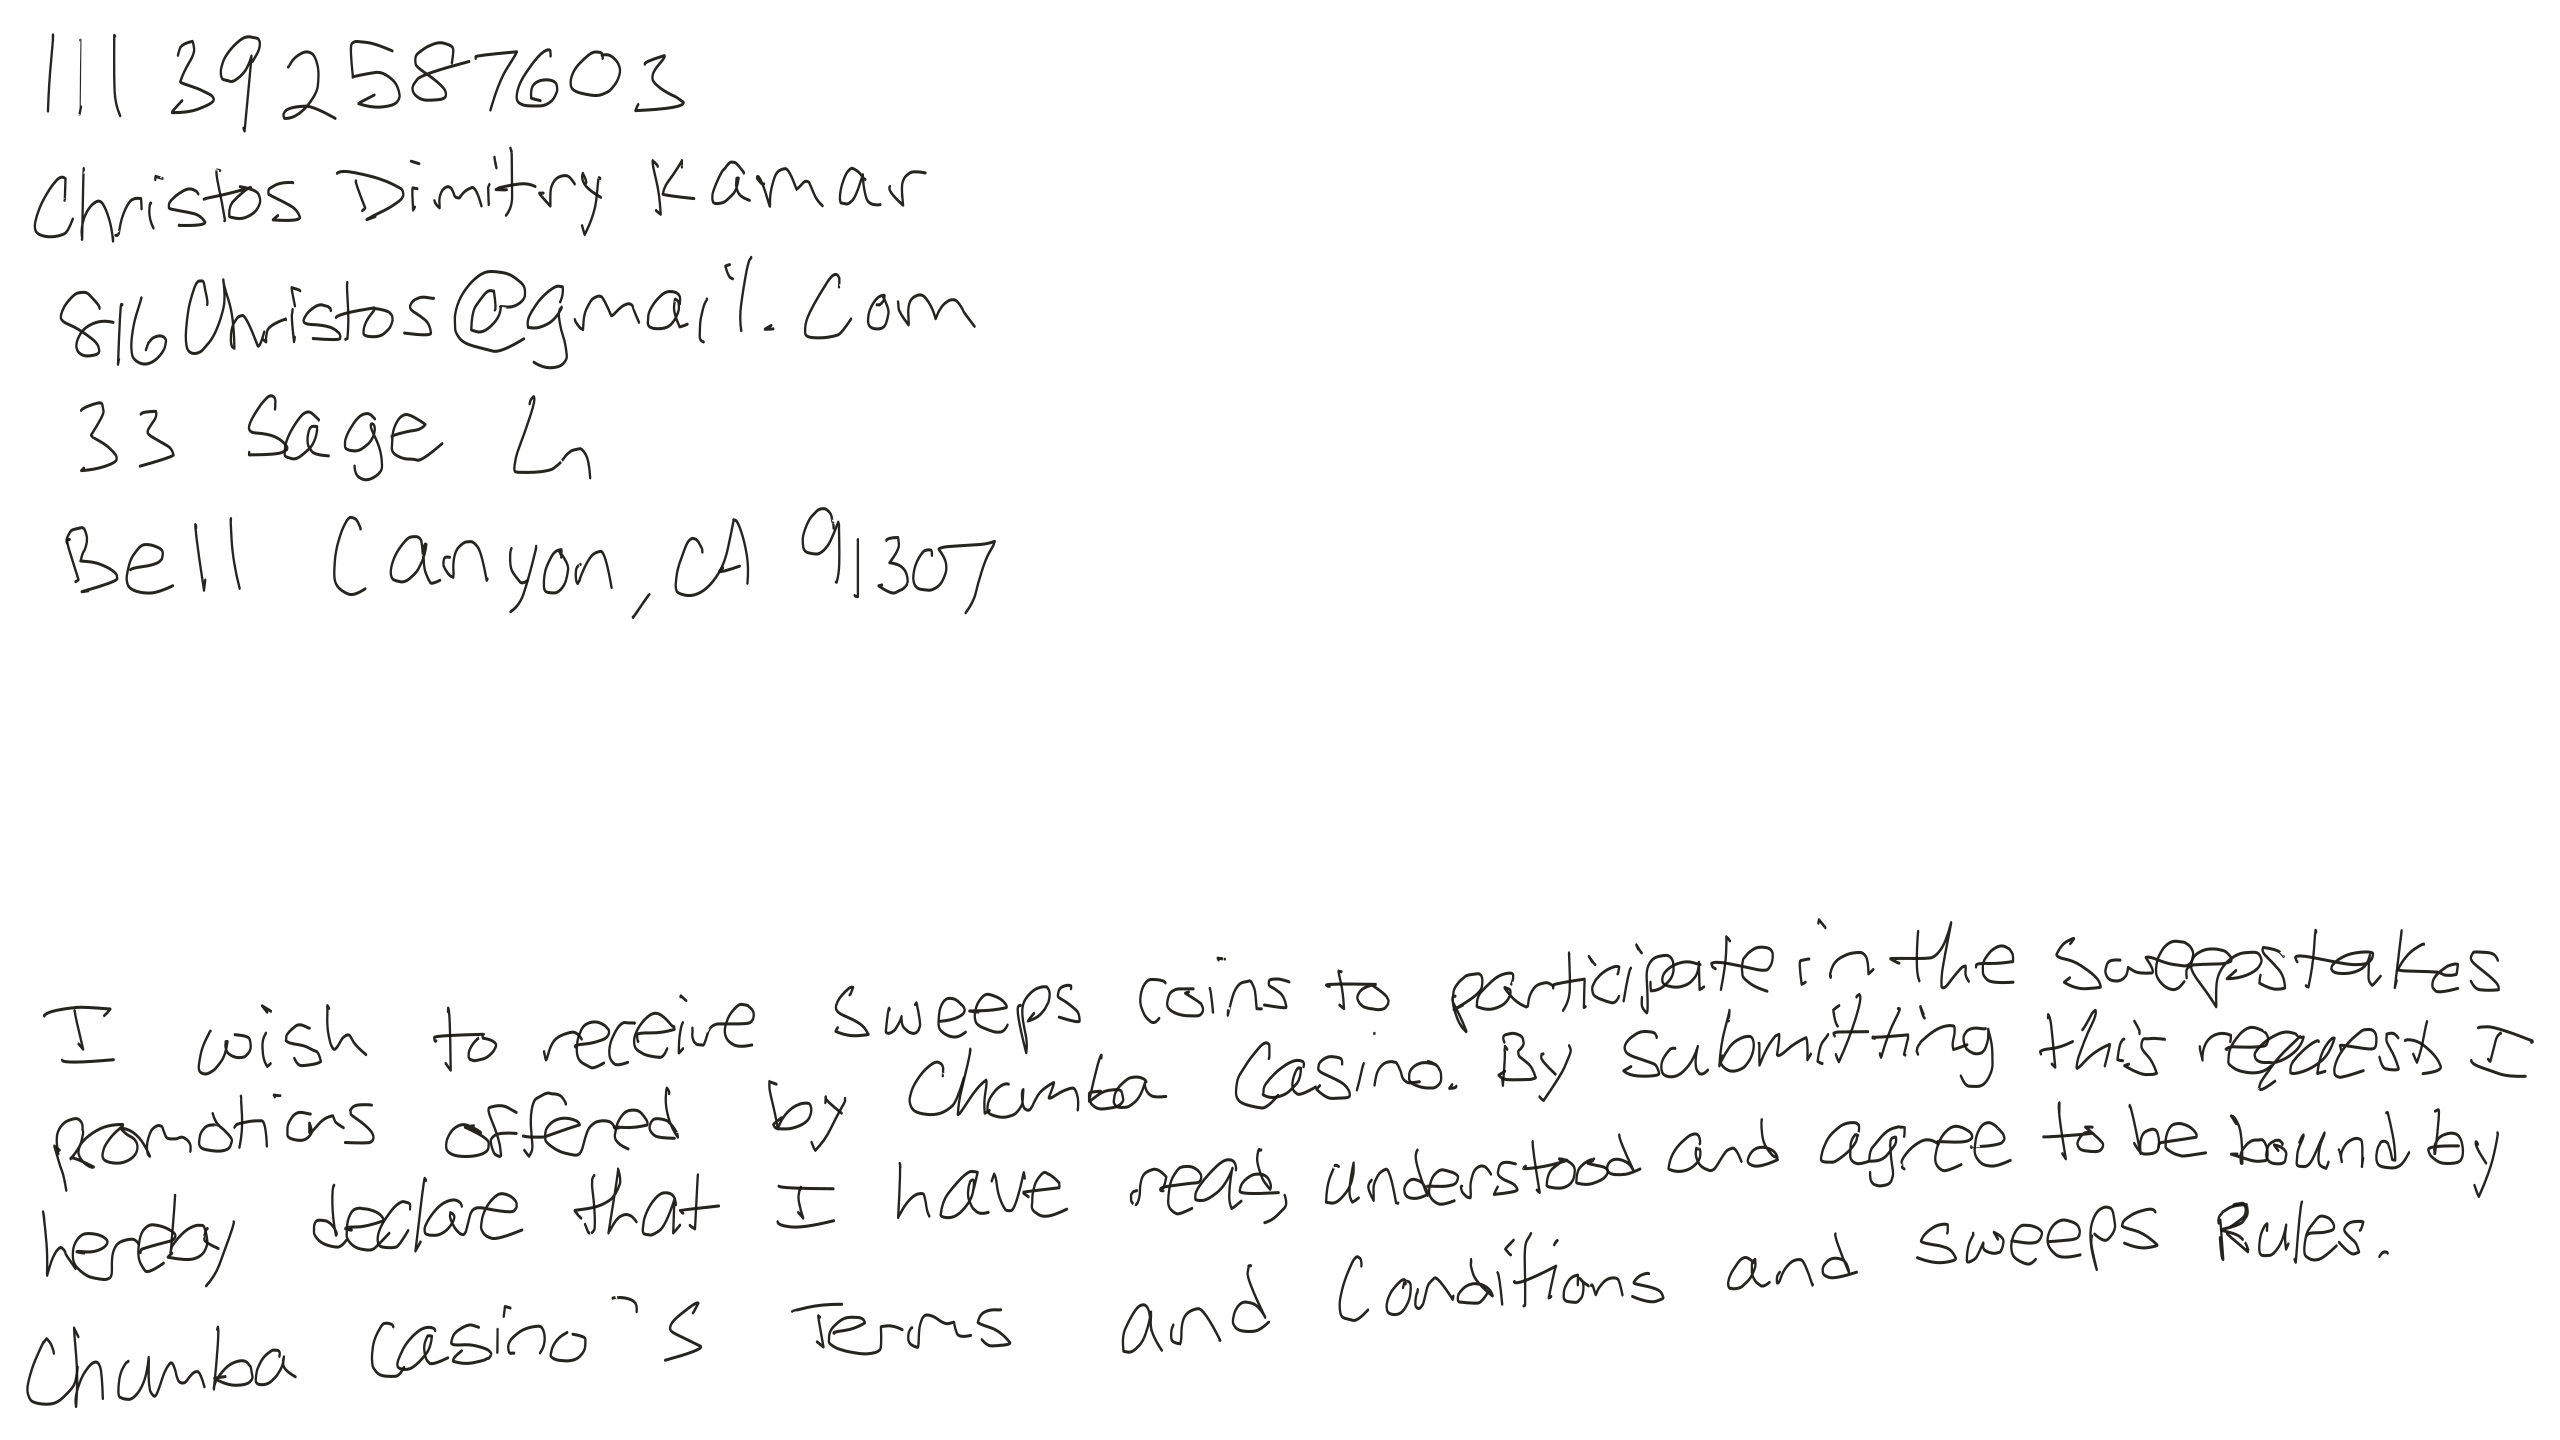 111392587603
Christos Dimitry Kamar
816Christos@gmail.com
33 Sage Ln
Bell Canyon, CA 91307
I wish to receive sweeps coins to participate in the sweepstakes
promotions offered by Chumba Casino. By submitting this request, I
hereby declare that I have read, understood and agree to be bound by
Chumba Casino's Terms and Conditions and sweeps Rules.